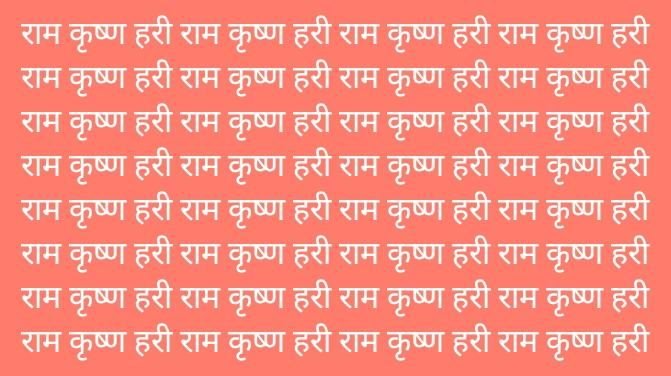 राम कृष्ण हरी राम कृष्ण हरी राम कृष्ण हरी राम कृष्ण हरी
राम कृष्ण हरी राम कृष्ण हरी राम कृष्ण हरी राम कृष्ण हरी
राम कृष्ण हरी राम कृष्ण हरी राम कृष्ण हरी राम कृष्ण हरी
राम कृष्ण हरी राम कृष्ण हरी राम कृष्ण हरी राम कृष्ण हरी
राम कृष्ण हरी राम कृष्ण हरी राम कृष्ण हरी राम कृष्ण हरी
राम कृष्ण हरी राम कृष्ण हरी राम कृष्ण हरी राम कृष्ण हरी
राम कृष्ण हरी राम कृष्ण हरी राम कृष्ण हरी राम कृष्ण हरी
राम कृष्ण हरी राम कृष्ण हरी राम कृष्ण हरी राम कृष्ण हरी